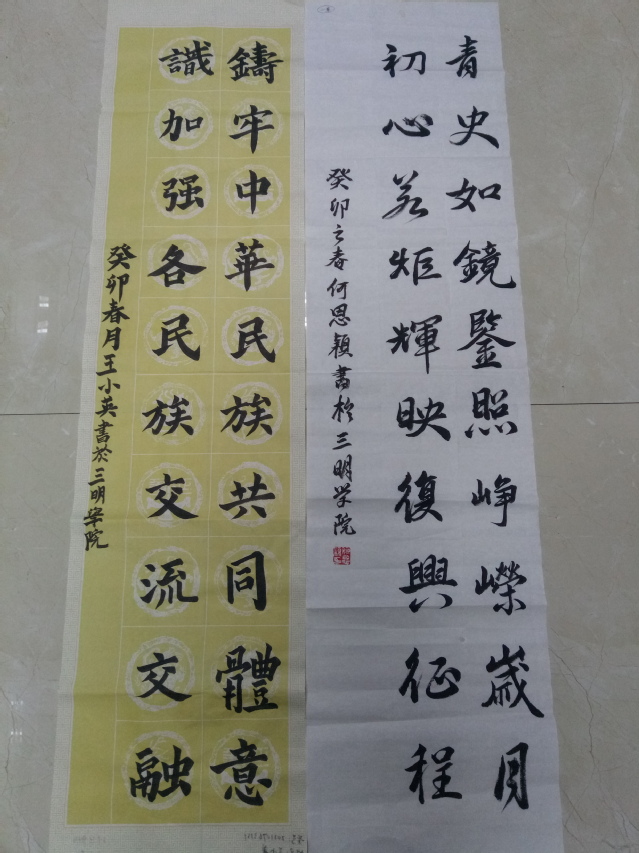 青史如鏡鑒照峥嶸歲月
初心若炬輝映復興征程
癸卯之春何思颖書於三明学院
鑄牢中華民族共同體意
識加强各民族交流交融
癸卯春月王小英書於三明學院